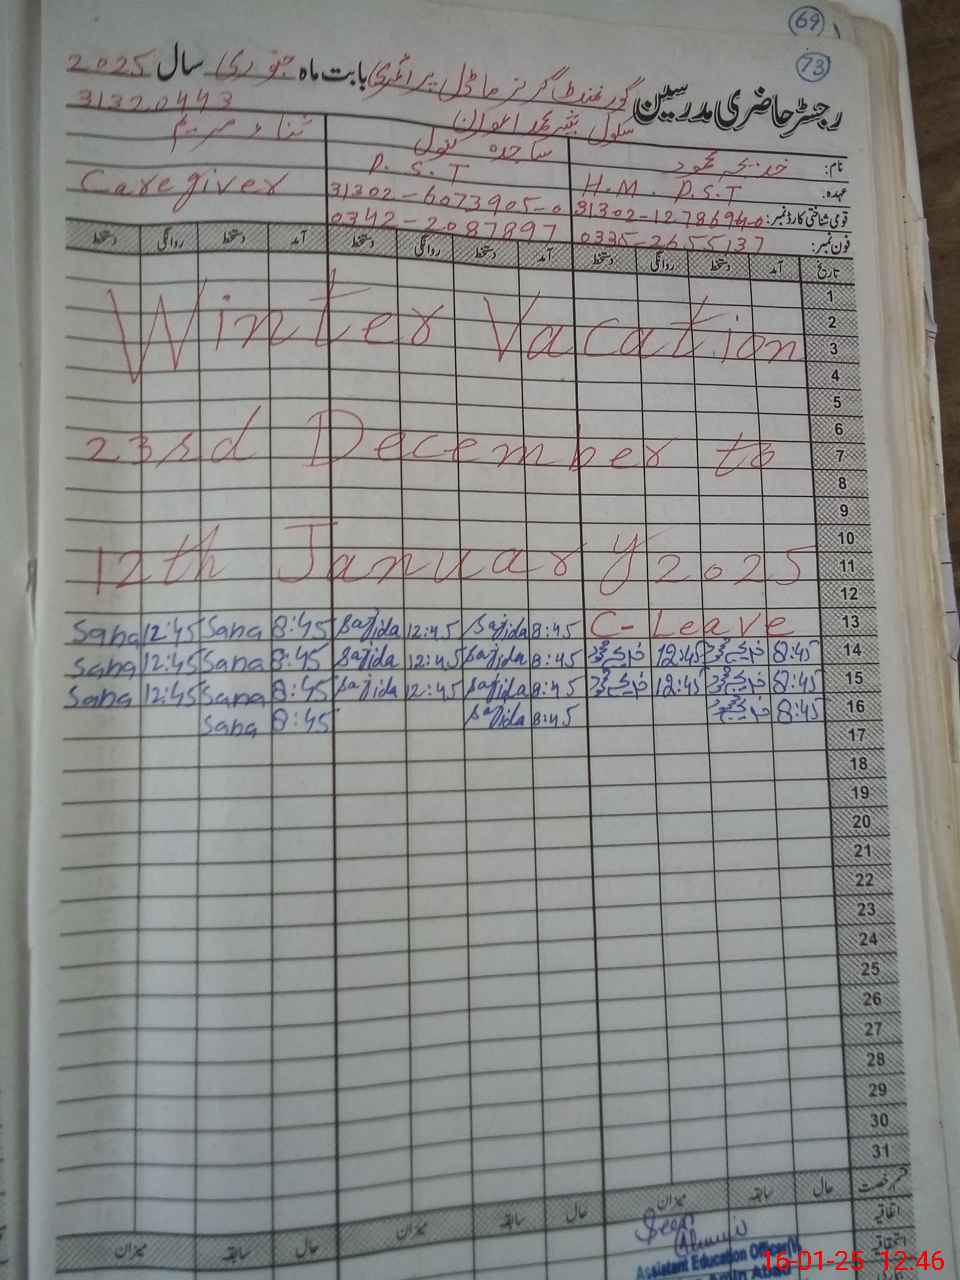 69
73
رجسٹر حاضری مدرسین گورنمنٹ گرلز ماڈل پرائمری بابت ماہ جنوری سال 2025
سکول بشیر محمد اعوان 31320443
نام: خدیجہ محمود ساجدہ بتول ثناء مریم
عہدہ: H.M. P.S.T P.S.T Caregiver
قومی شناختی کارڈ نمبر: 31302-6073905-0
فون نمبر: 0335-2655137 0342-2087897
تاریخ آمد دستخط روانگی دستخط آمد دستخط روانگی دستخط آمد دستخط روانگی دستخط
1
2
3
Winter Vacation
4
5
6
7
23rd December to
8
9
10
11
12th January 2025
12
Sana 12:45 Sana 8:45 Sajida 12:45 Sajida 8:45 C-Leave 13
Sana 12:45 Sana 8:45 Sajida 12:45 Sajida 8:45 خدیجہ محمود 12:45 خدیجہ محمود 8:45 14
Sana 12:45 Sana 8:45 Sajida 12:45 Sajida 8:45 خدیجہ محمود 12:45 خدیجہ محمود 8:45 15
Sana 8:45 Sajida 8:45 خدیجہ محمود 8:45 16
17
18
19
20
21
22
23
24
25
26
27
28
29
30
31
قسم رخصت حال سابقہ میزان حال سابقہ میزان حال سابقہ میزان
اتفاقیہ
Seen
Assistant Education Officer
16-01-25 12:46